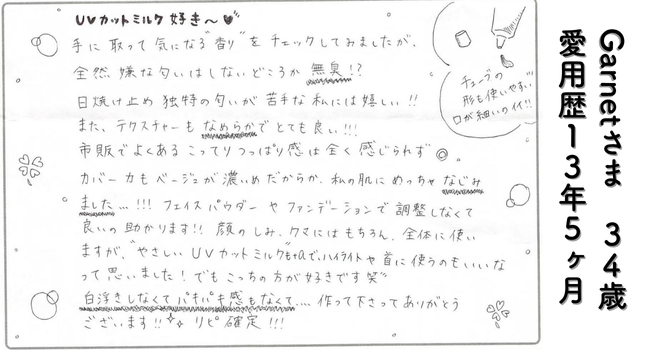 UVカットミルク 好き〜
手に取って気になる"香り"をチェックしてみましたが、
全然 嫌な匂いはしないどころか 無臭!?
日焼け止め 独特の匂いが 苦手な私には嬉しい!!
また、テクスチャーも なめらかで とても良い!!!
市販でよくある こってりつっぱり感は全く感じられず◎
カバー力もベージュが濃いめだからか、私の肌にめっちゃ なじみ
ました…!!! フェイスパウダーや ファンデーションで調整しなくて
良いの助かります!! 顔のしみ、クマにはもちろん、全体に使い
ますが、"やさしいUVカットミルク"も+αで、ハイライトや首に使うのもいいな
って思いました! でもこっちの方が好きです笑"
白浮きしなくてパキパキ感もなくて… 作って下さってありがとう
ございます!! リピ確定!!!
チューブの
形も使いやすい
口が細いのイイ!!
Garnetさま 34歳
愛用歴13年5ヶ月